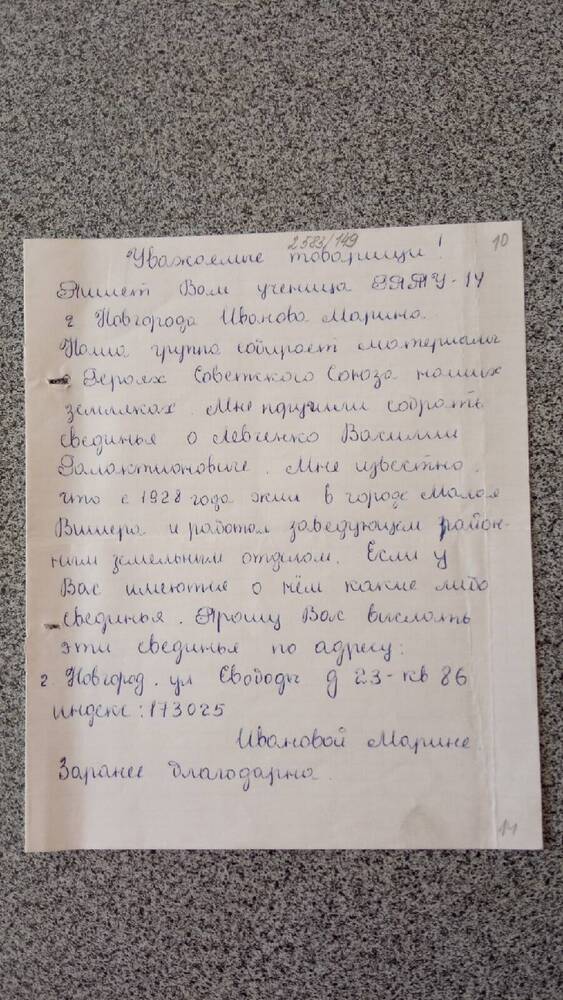 2583/149
10
Уважаемые товарищи!
Пишет Вам ученица ГПТУ-14
г Новгорода Иванова Марина.
Наша группа собирает материалы
о Героях Советского Союза наших
земляках. Мне поручили собрать
свединья о Левченко Василии
Галактионовиче. Мне известно,
что с 1928 года жил в городе Малая
Вишера и работал заведующем район-
ным земельным отделом. Если у
Вас имеются о нём какие либо
свединья. Прошу Вас выслать
эти свединья по адресу:
г. Новгород. ул Свободы д 23-кв 86
индекс: 173025
Ивановой Марине
Заранее благодарна.